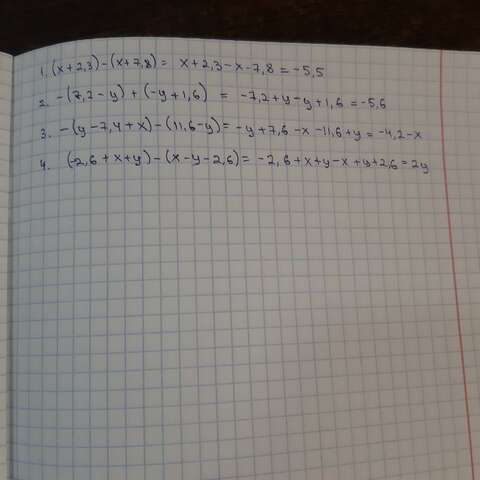 1. (x+2,3)-(x+7,8)= x+2,3-x-7,8=-5,5
2. -(7,2-y)+(-y+1,6) = -7,2+y-y+1,6=-5,6
3. -(y-7,4+x)-(11,6-y)=-y+7,6-x-11,6+y=-4,2-x
4. (-2,6+x+y)-(x-y-2,6)=-2,6+x+y-x+y+2,6=2y